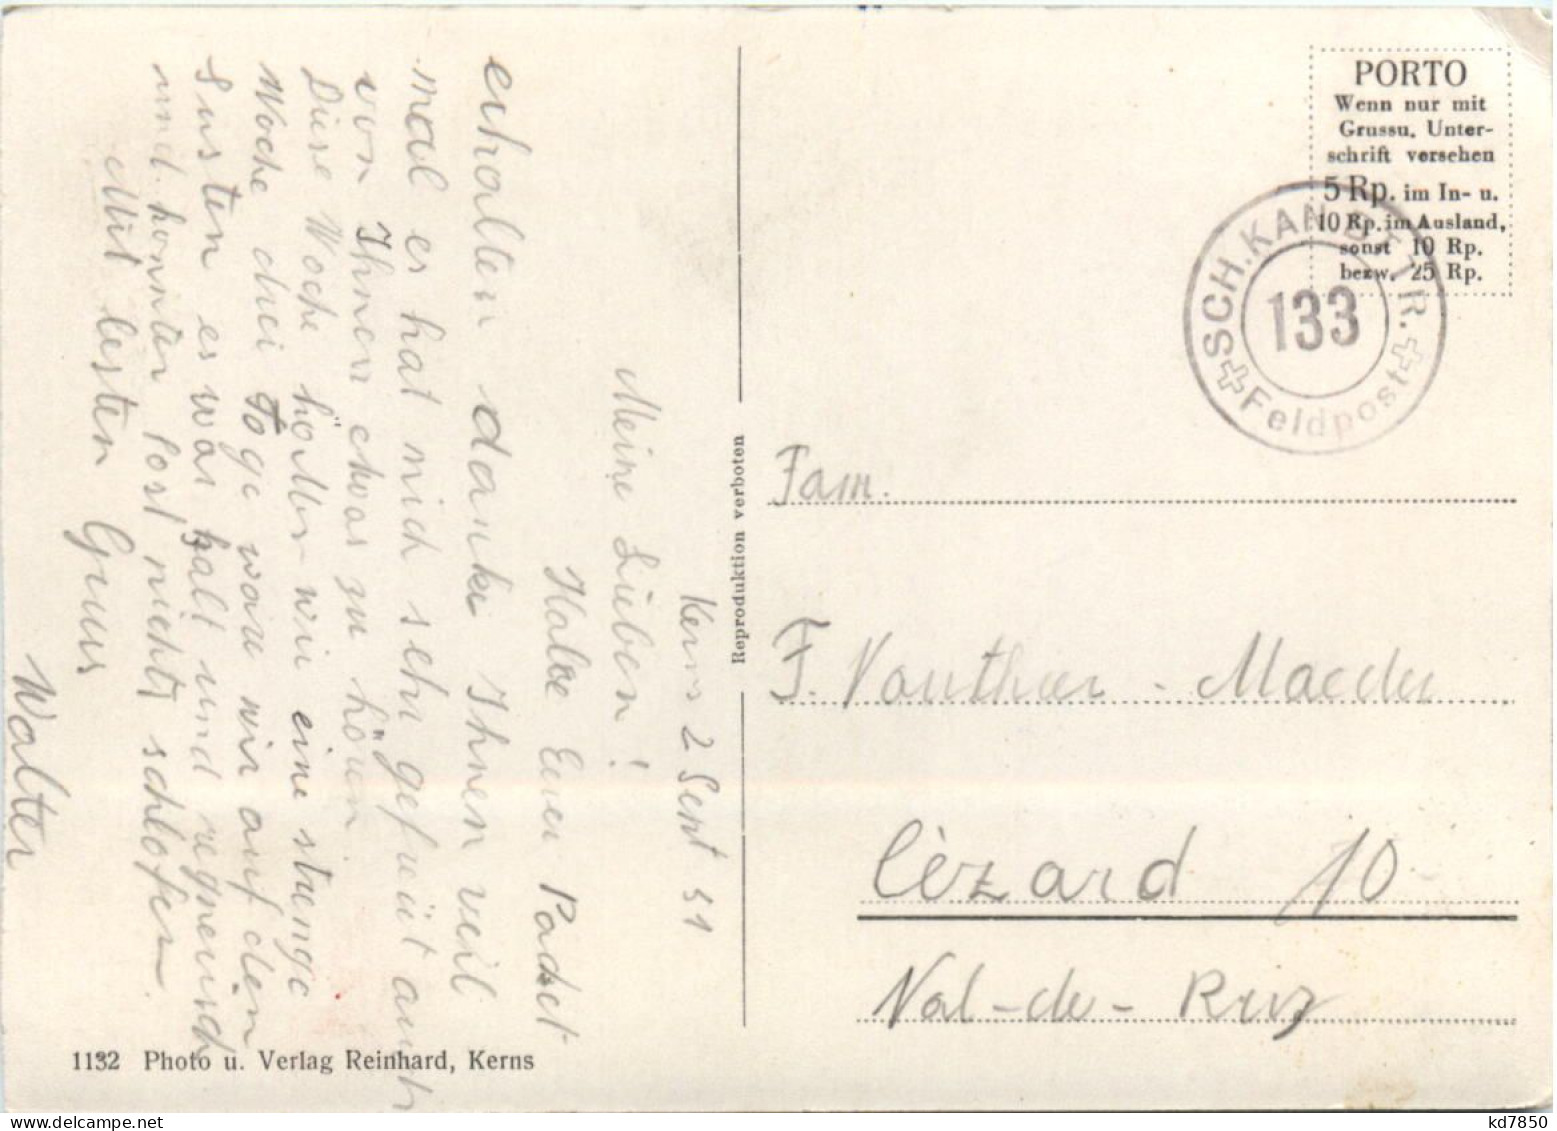 Kerns 2 Sept 51
Meine Lieben!
Habe Euer Packet
erhalten danke Ihnen weil
mal es hat mich sehr gefreüt auch
von Ihnen etwas zu hören
Diese Woche hatten wir eine strenge
Woche drei Tage ware wir auf den
Susten es war halt und regnerisch
und konnten fast nichts schlafen.
Mit besten Gruss
Walter
1132 Photo u. Verlag Reinhard, Kerns
Reproduktion verboten
PORTO
Wenn nur mit
Grussu. Unter-
schrift versehen
5 Rp. im In- u.
10 Rp. im Ausland,
sonst 10 Rp.
bezw. 25 Rp.
SCH.KAN. BTTR.
133
Feldpost
Fam.
F. Vauthier - Maeder
Cézard 10
Val-de-Ruz
kd7850